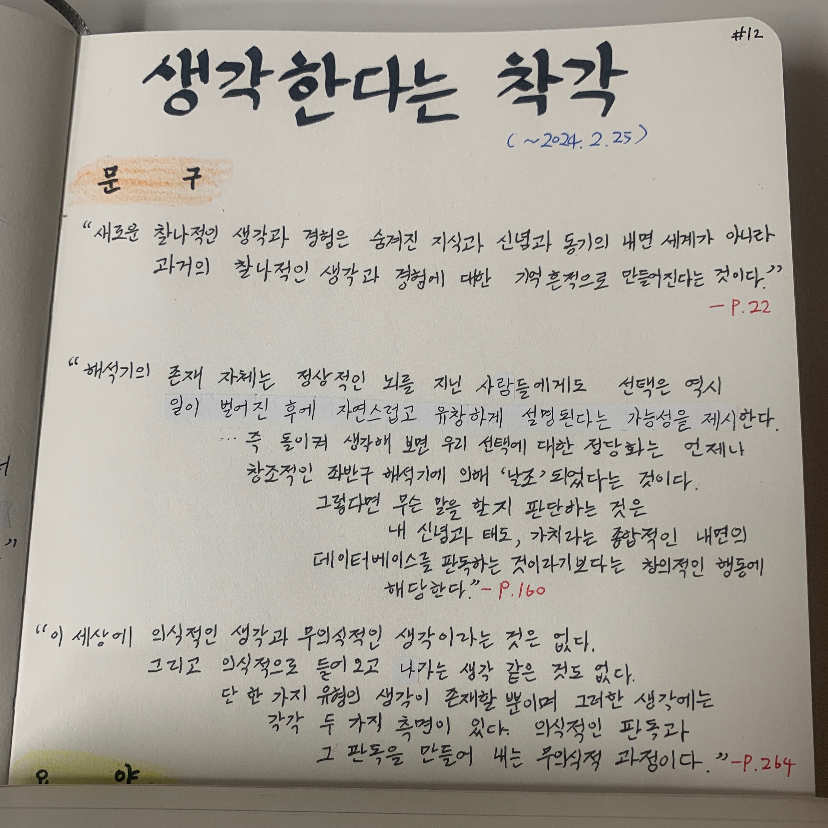 #12
생각한다는 착각
(~2024.2.25)
문 구
“새로운 찰나적인 생각과 경험은 숨겨진 지식과 신념과 동기의 내면 세계가 아니라
과거의 찰나적인 생각과 경험에 대한 기억 흔적으로 만들어진다는 것이다.”
-P.22
“해석기의 존재 자체는 정상적인 뇌를 지닌 사람들에게도 선택은 역시
일이 벌어진 후에 자연스럽고 유창하게 설명된다는 가능성을 제시한다.
… 즉 돌이켜 생각해 보면 우리 선택에 대한 정당화는 언제나
창조적인 좌반구 해석기에 의해 ‘날조’되었다는 것이다.
그렇다면 무슨 말을 할지 판단하는 것은
내 신념과 태도, 가치라는 종합적인 내면의
데이터베이스를 판독하는 것이라기보다는 창의적인 행동에
해당한다.” -P.160
“이 세상에 의식적인 생각과 무의식적인 생각이라는 것은 없다.
그리고 의식적으로 들어오고 나가는 생각 같은 것도 없다.
단 한 가지 유형의 생각이 존재할 뿐이며 그러한 생각에는
각각 두 가지 측면이 있다. 의식적인 판독과
그 판독을 만들어 내는 무의식적 과정이다.” -P.264
요 약